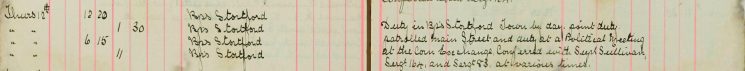 Thurs 12th 12 20 B/ps Stortford
" " 1 30 B/ps Stortford
" " 6 15 B/ps Stortford
" " 11 B/ps Stortford
Duty in B/ps Stortford Town by day. point duty
patrolled Main Street and duty at a Political Meeting
at the Corn Exchange. Conferred with Supt Sullivan,
Sergt 164, and Sergt 83. at various times.